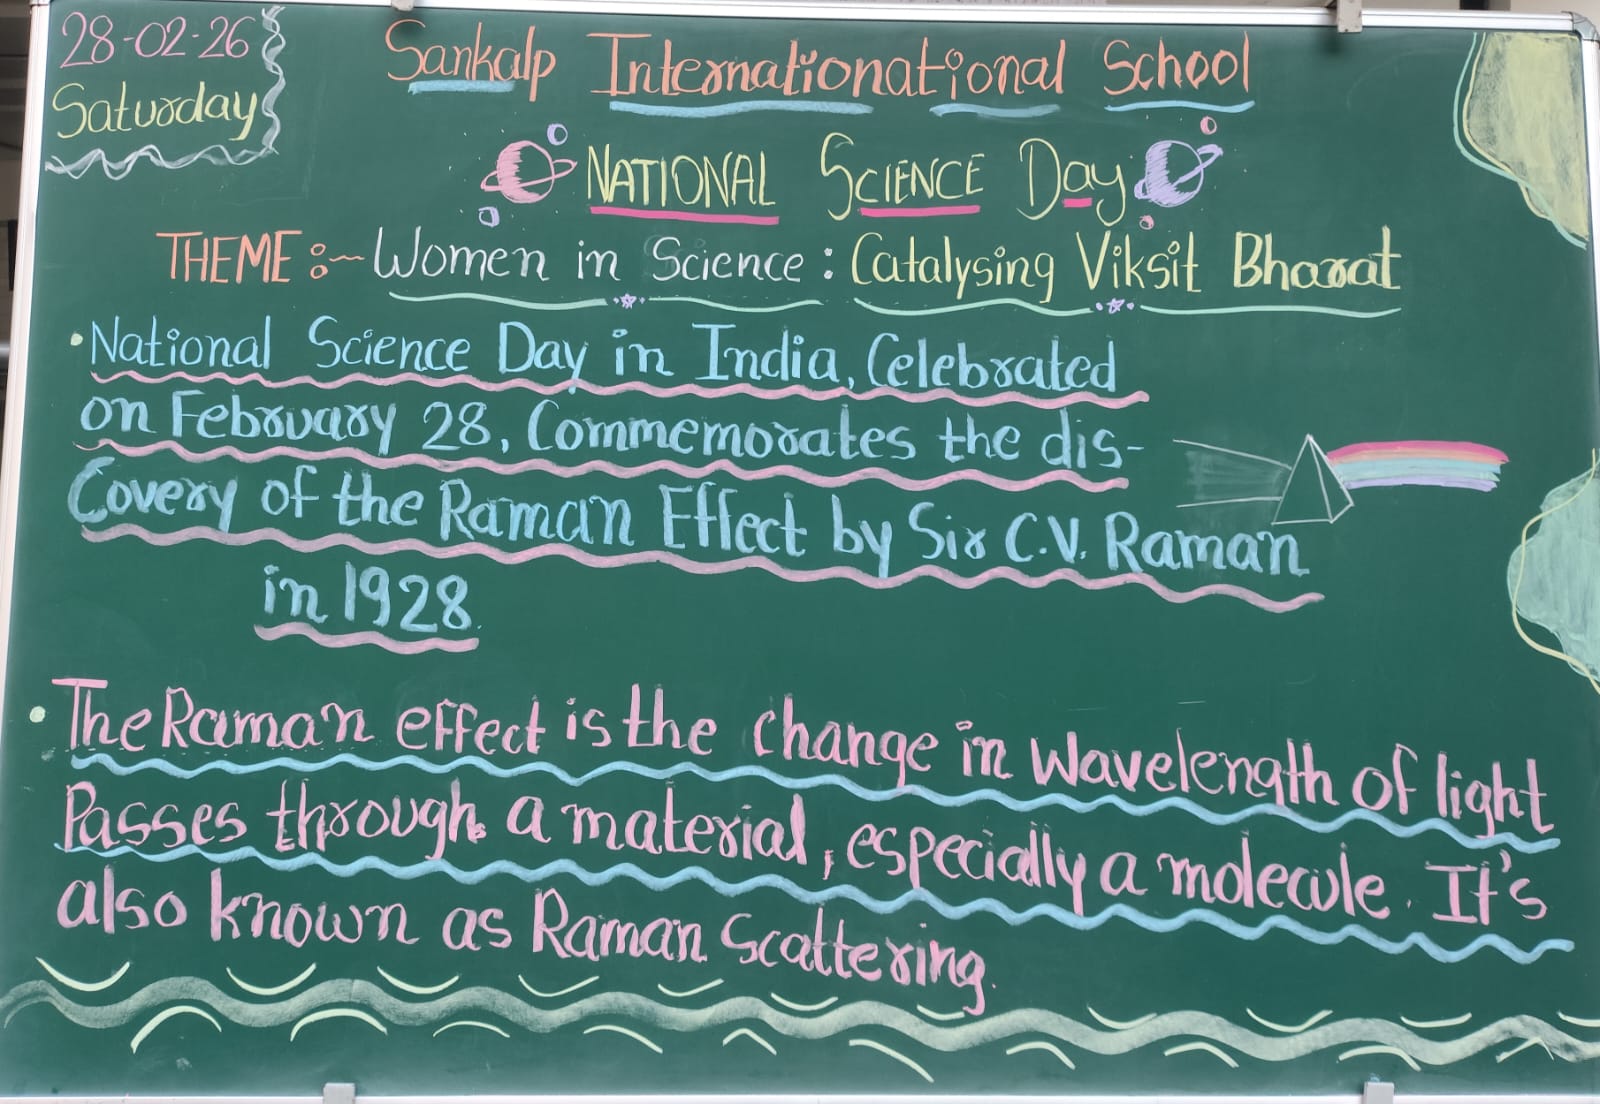 28-02-26
Saturday
Sankalp Internationational School
NATIONAL SCIENCE Day
THEME :- Women in Science : Catalysing Viksit Bharat
• National Science Day in India, Celebrated
on February 28, Commemorates the dis-
Covery of the Raman Effect by Sir C.V. Raman
in 1928.
• The Raman effect is the change in wavelength of light
Passes through a material, especially a molecule. It's
also known as Raman Scattering.